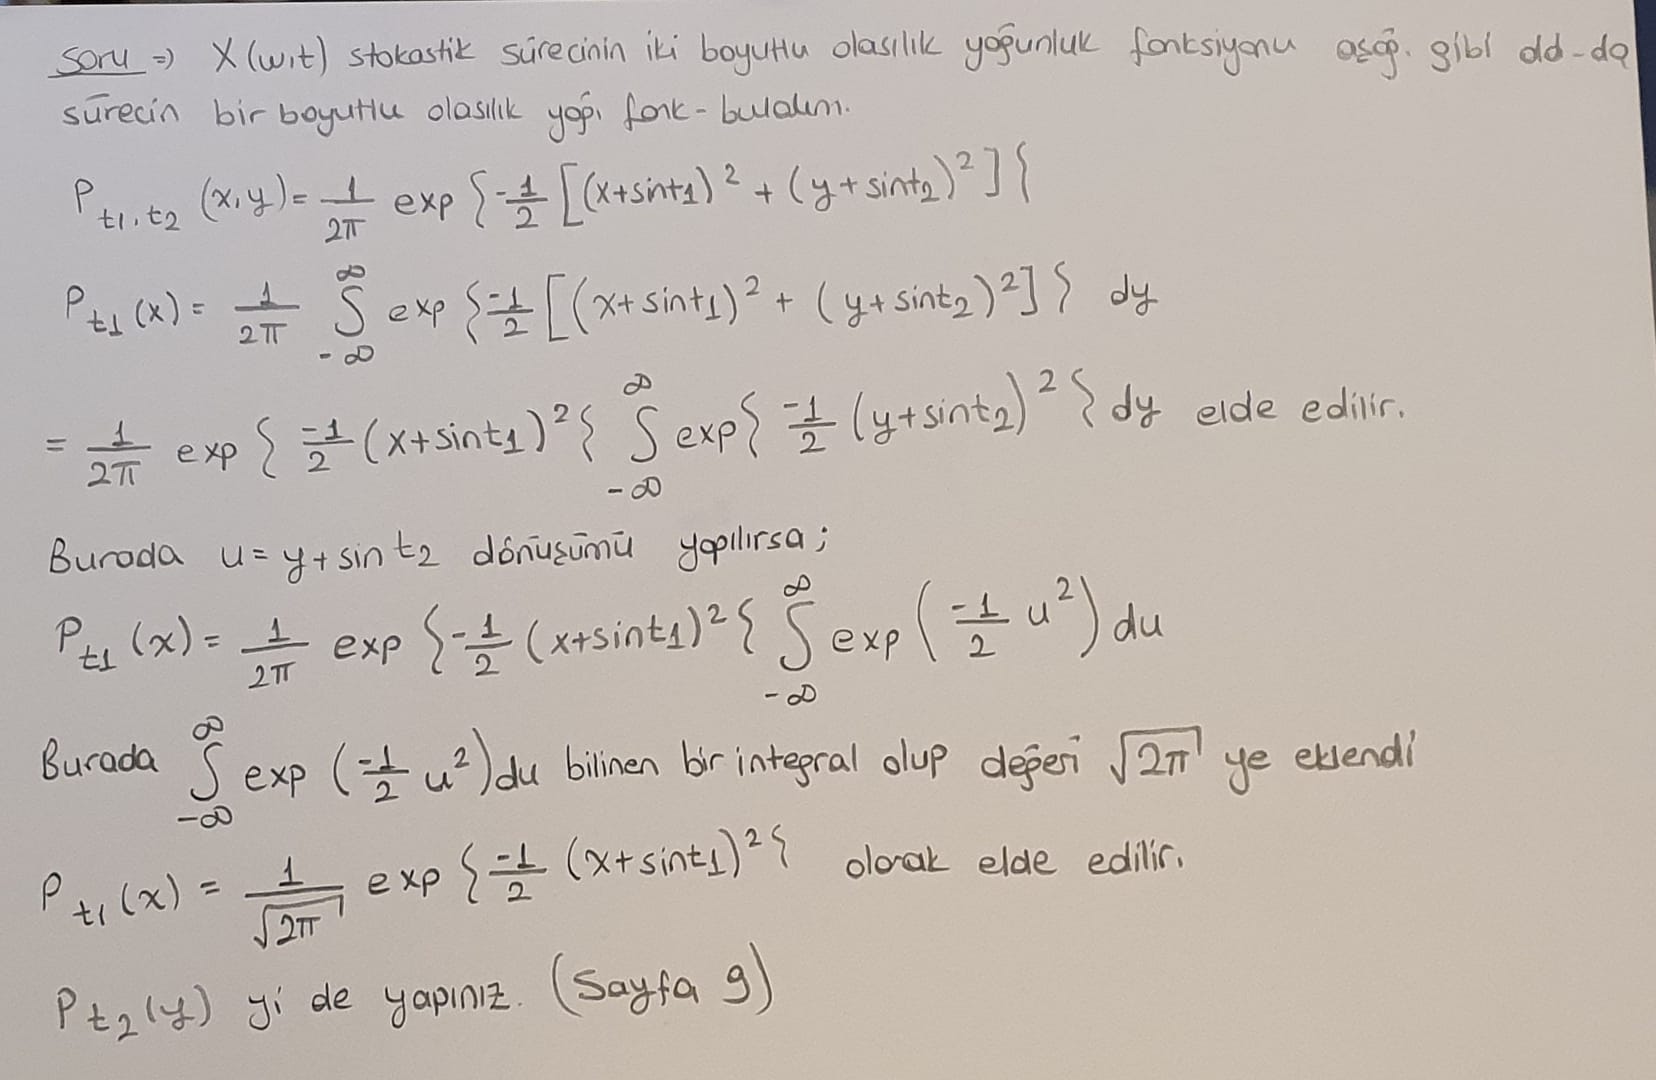 Soru => X(w,t) stokastik sürecinin iki boyutlu olasılık yoğunluk fonksiyonu aşağ. gibi old-da
sürecin bir boyutlu olasılık yoğ. fonk- bulalım.
P_{t1,t2} (x,y) = 1/2π exp {-1/2 [(x+sint1)² + (y+sint2)²]}
P_{t1}(x) = 1/2π ∫_{-∞}^{∞} exp {-1/2 [(x+sint1)² + (y+sint2)²]} dy
= 1/2π exp {-1/2 (x+sint1)²} ∫_{-∞}^{∞} exp{-1/2 (y+sint2)²} dy elde edilir.
Burada u = y+sin t2 dönüşümü yapılırsa;
P_{t1}(x) = 1/2π exp {-1/2 (x+sint1)²} ∫_{-∞}^{∞} exp (-1/2 u²) du
Burada ∫_{-∞}^{∞} exp (-1/2 u²) du bilinen bir integral olup değeri √2π ye eklendi
P_{t1}(x) = 1/√2π exp {-1/2 (x+sint1)²} olarak elde edilir.
P_{t2}(y) yi de yapınız. (Sayfa 9)